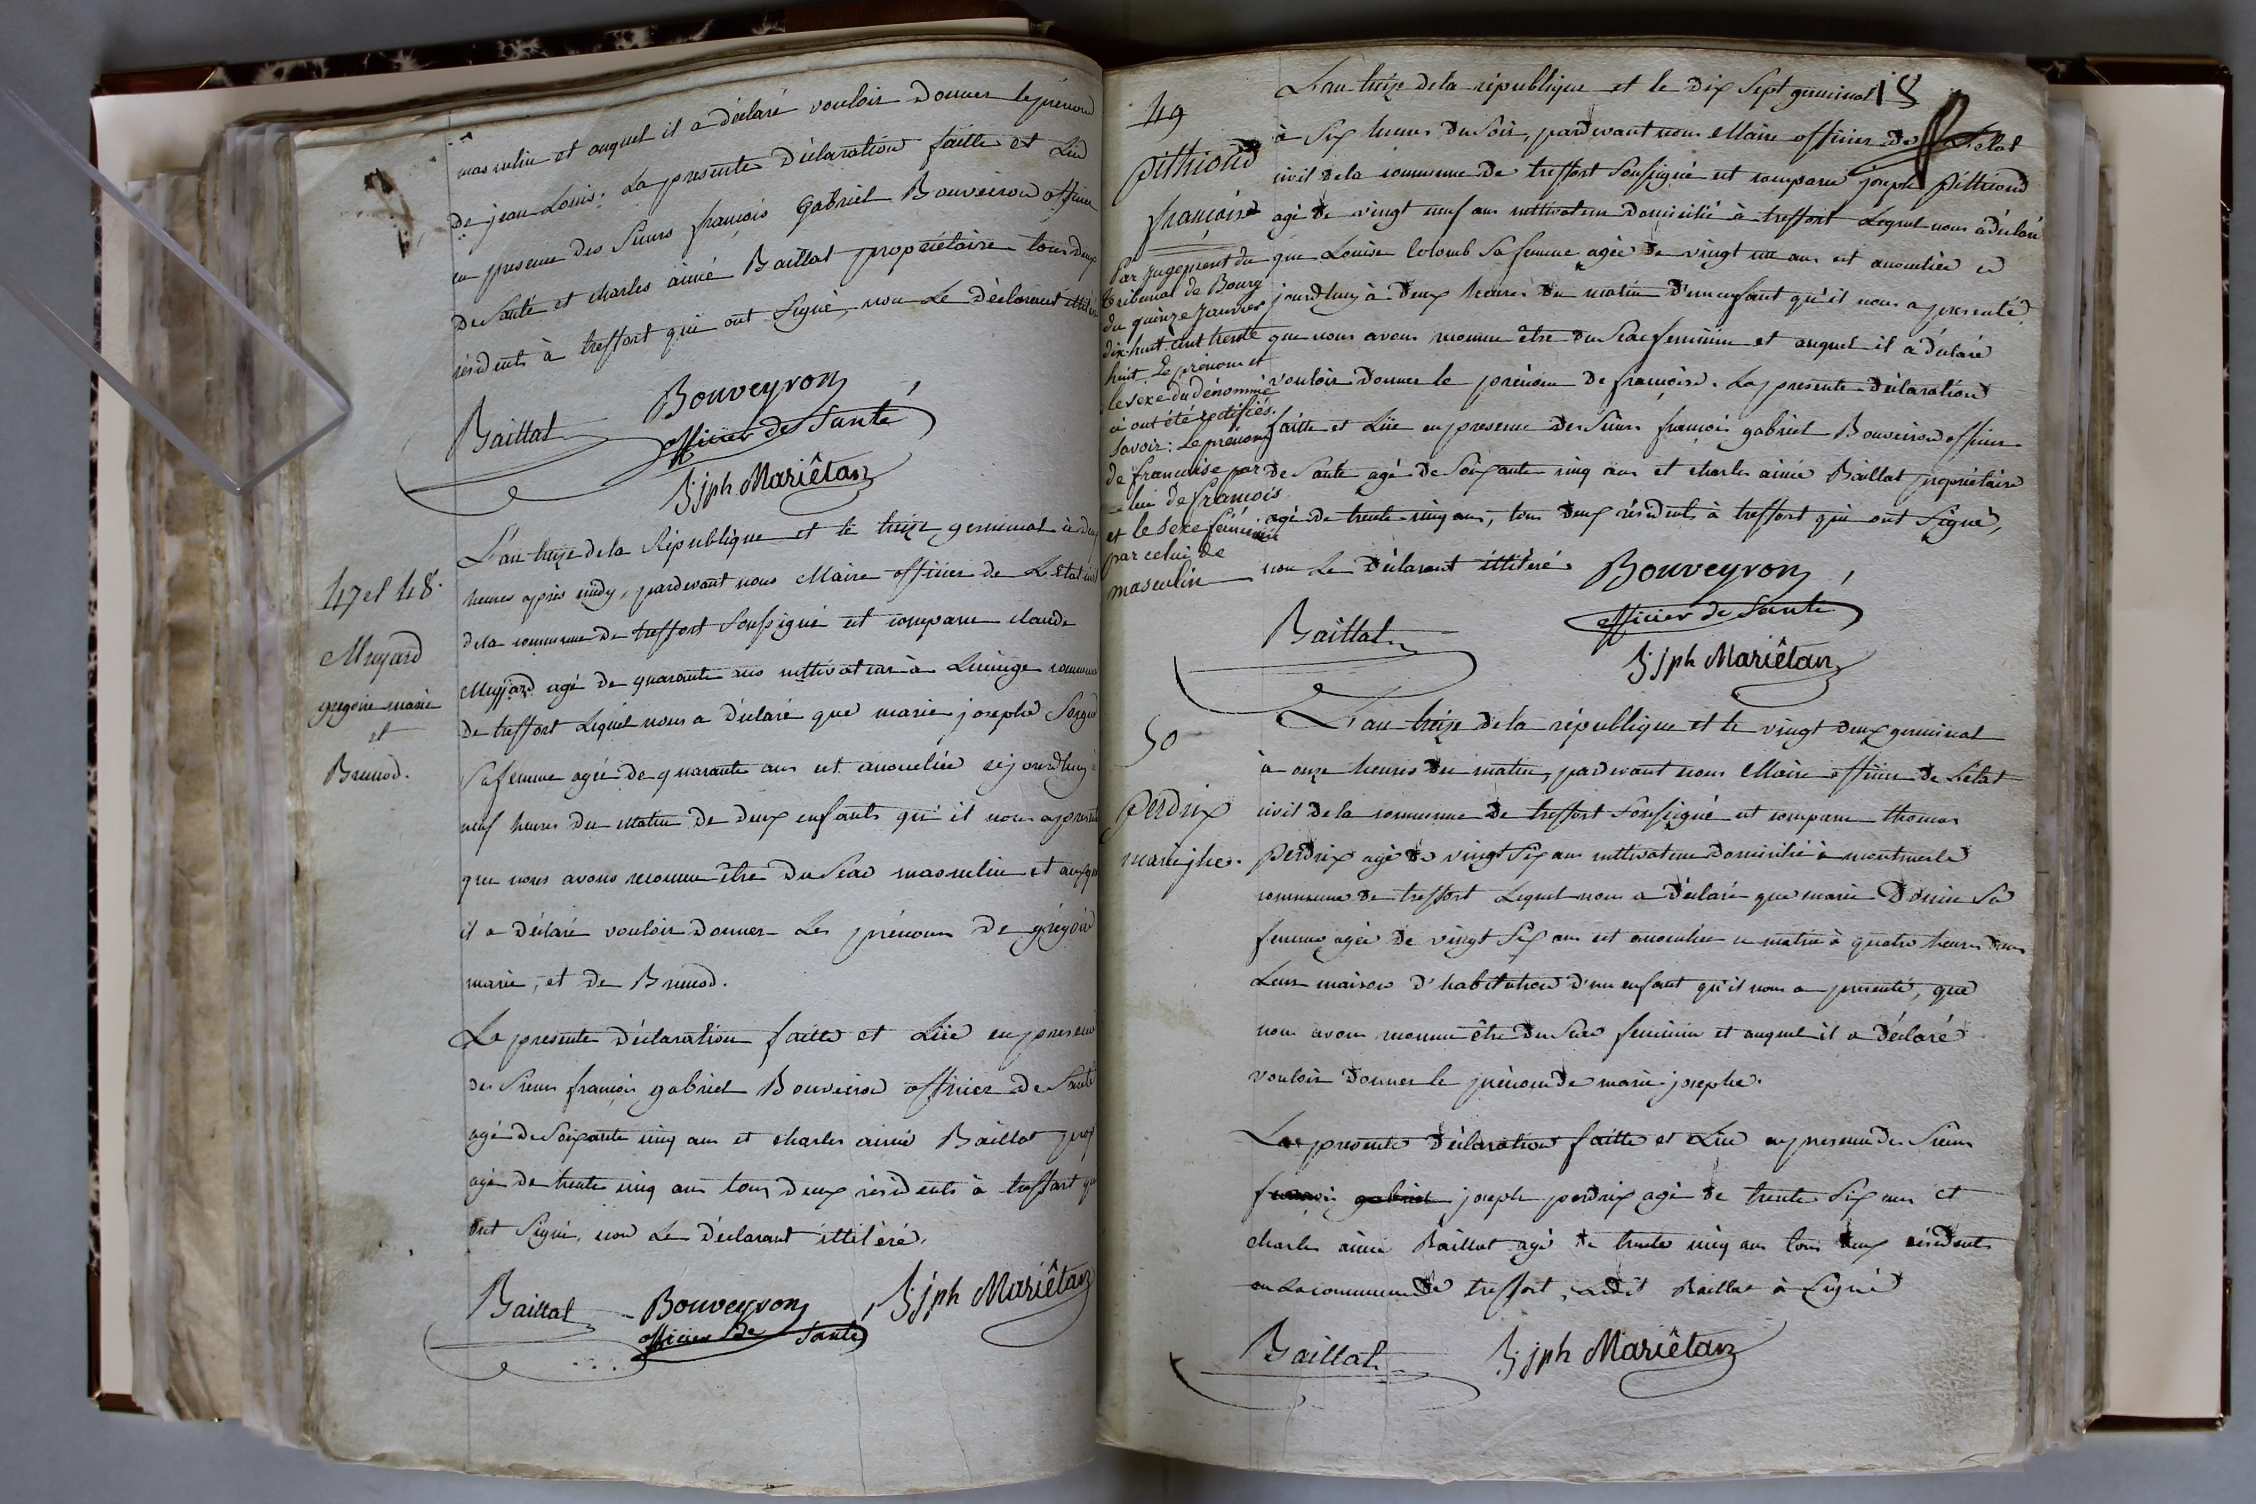 masculin et auquel il a déclaré vouloir donner le prénom
de jean Louis. La presente déclaration faitte et Lüe
en presence des Sieurs françois Gabriel Bouveiron officier
de Santé et charles aimé Baillat propriétaire tous deux
résidents à treffort qui ont Signé, non Le déclarant illitéré
Baillat
Bouveyron
officier de Santé
jph Mariêtan
47 et 48.
Muyard
gregoire marie
et
Brunod.
L'an treize dela République et le treize germinal à deux
heures après midy, pardevant nous Maire officier de L'Etat civil
dela commune de treffort Soussigné est comparu claude
Muyard agé de quarante ans cultivateur à Lucinge commune
de treffort Lequel nous a déclaré que marie josephe
Sa femme agée de quarante ans est accouchée cejourdhuy à
neuf heures du matin de deux enfants qu'il nous a presenté
que nous avons reconnu être du Sexe masculin et auxquels
il a déclaré vouloir donner Les prénoms de grégoire
marie, et de Brunod.
La presente déclaration faitte et Lüe en presence
des Sieurs françois gabriel Bouveiron officier de Santé
agé de Soixante cinq ans et charles aimé Baillat prop
agé de trente cinq ans tous deux résidents à treffort qui
ont Signé, non Le déclarant illitéré.
Baillat
Bouveyron
officier de Santé
jph Mariêtan
18
49
pithiond
françoise
Par jugement du
tribunal de Bourg
du quinze janvier
dix-huit cent trente
huit. Le prénom et
le sexe du dénommé
ci ont été rectifiés.
Savoir: Le prénom
de françoise par
celui de françois
et le sexe féminin
par celui de
masculin
L'an treize dela république et le dix Sept germinal
à Six heures du Soir, pardevant nous Maire officier de L'etat
civil dela commune de treffort Soussigné est comparu joseph pithiond
agé de vingt neuf ans cultivateur domicilié à treffort Lequel nous a déclaré
que Louise Colomb Sa femme agée de vingt un ans est accouchée
jourdhuy à deux heures du matin d'un enfant qu'il nous a presenté
que nous avons reconnu être du Sexe feminin et auquel il a déclaré
vouloir donner le prénom de françoise. La presente déclaration
faitte et Lüe en presence des Sieurs françois gabriel Bouveiron officier
de Santé agé de Soixante cinq ans et charles aimé Baillat propriétaire
agé de trente cinq ans, tous deux résidents à treffort qui ont Signé,
non Le déclarant illitéré
Baillat
Bouveyron
officier de Santé
jph Mariêtan
50
perdrix
marie jhe.
L'an treize dela république et le vingt deux germinal
à onze heures du matin, pardevant nous Maire officier de L'etat
civil dela commune de treffort Soussigné est comparu thomas
perdrix agé de vingt Six ans cultivateur domicilié à montmerle
commune de treffort Lequel nous a déclaré que marie Sa
femme agée de vingt Six ans est accouchée ce matin à quatre heures dans
Leur maison d'habitation d'un enfant qu'il nous a presenté, que
nous avons reconnu être du Sexe feminin et auquel il a déclaré
vouloir donner le prénom de marie josephe.
La presente déclaration faitte et Lüe en presence des Sieurs
françois gabriel joseph perdrix agé de trente Six ans et
charles aimé Baillat agé de trente cinq ans tous deux résidents
en La commune de treffort, Ledit Baillat à Signé
Baillat
jph Mariêtan